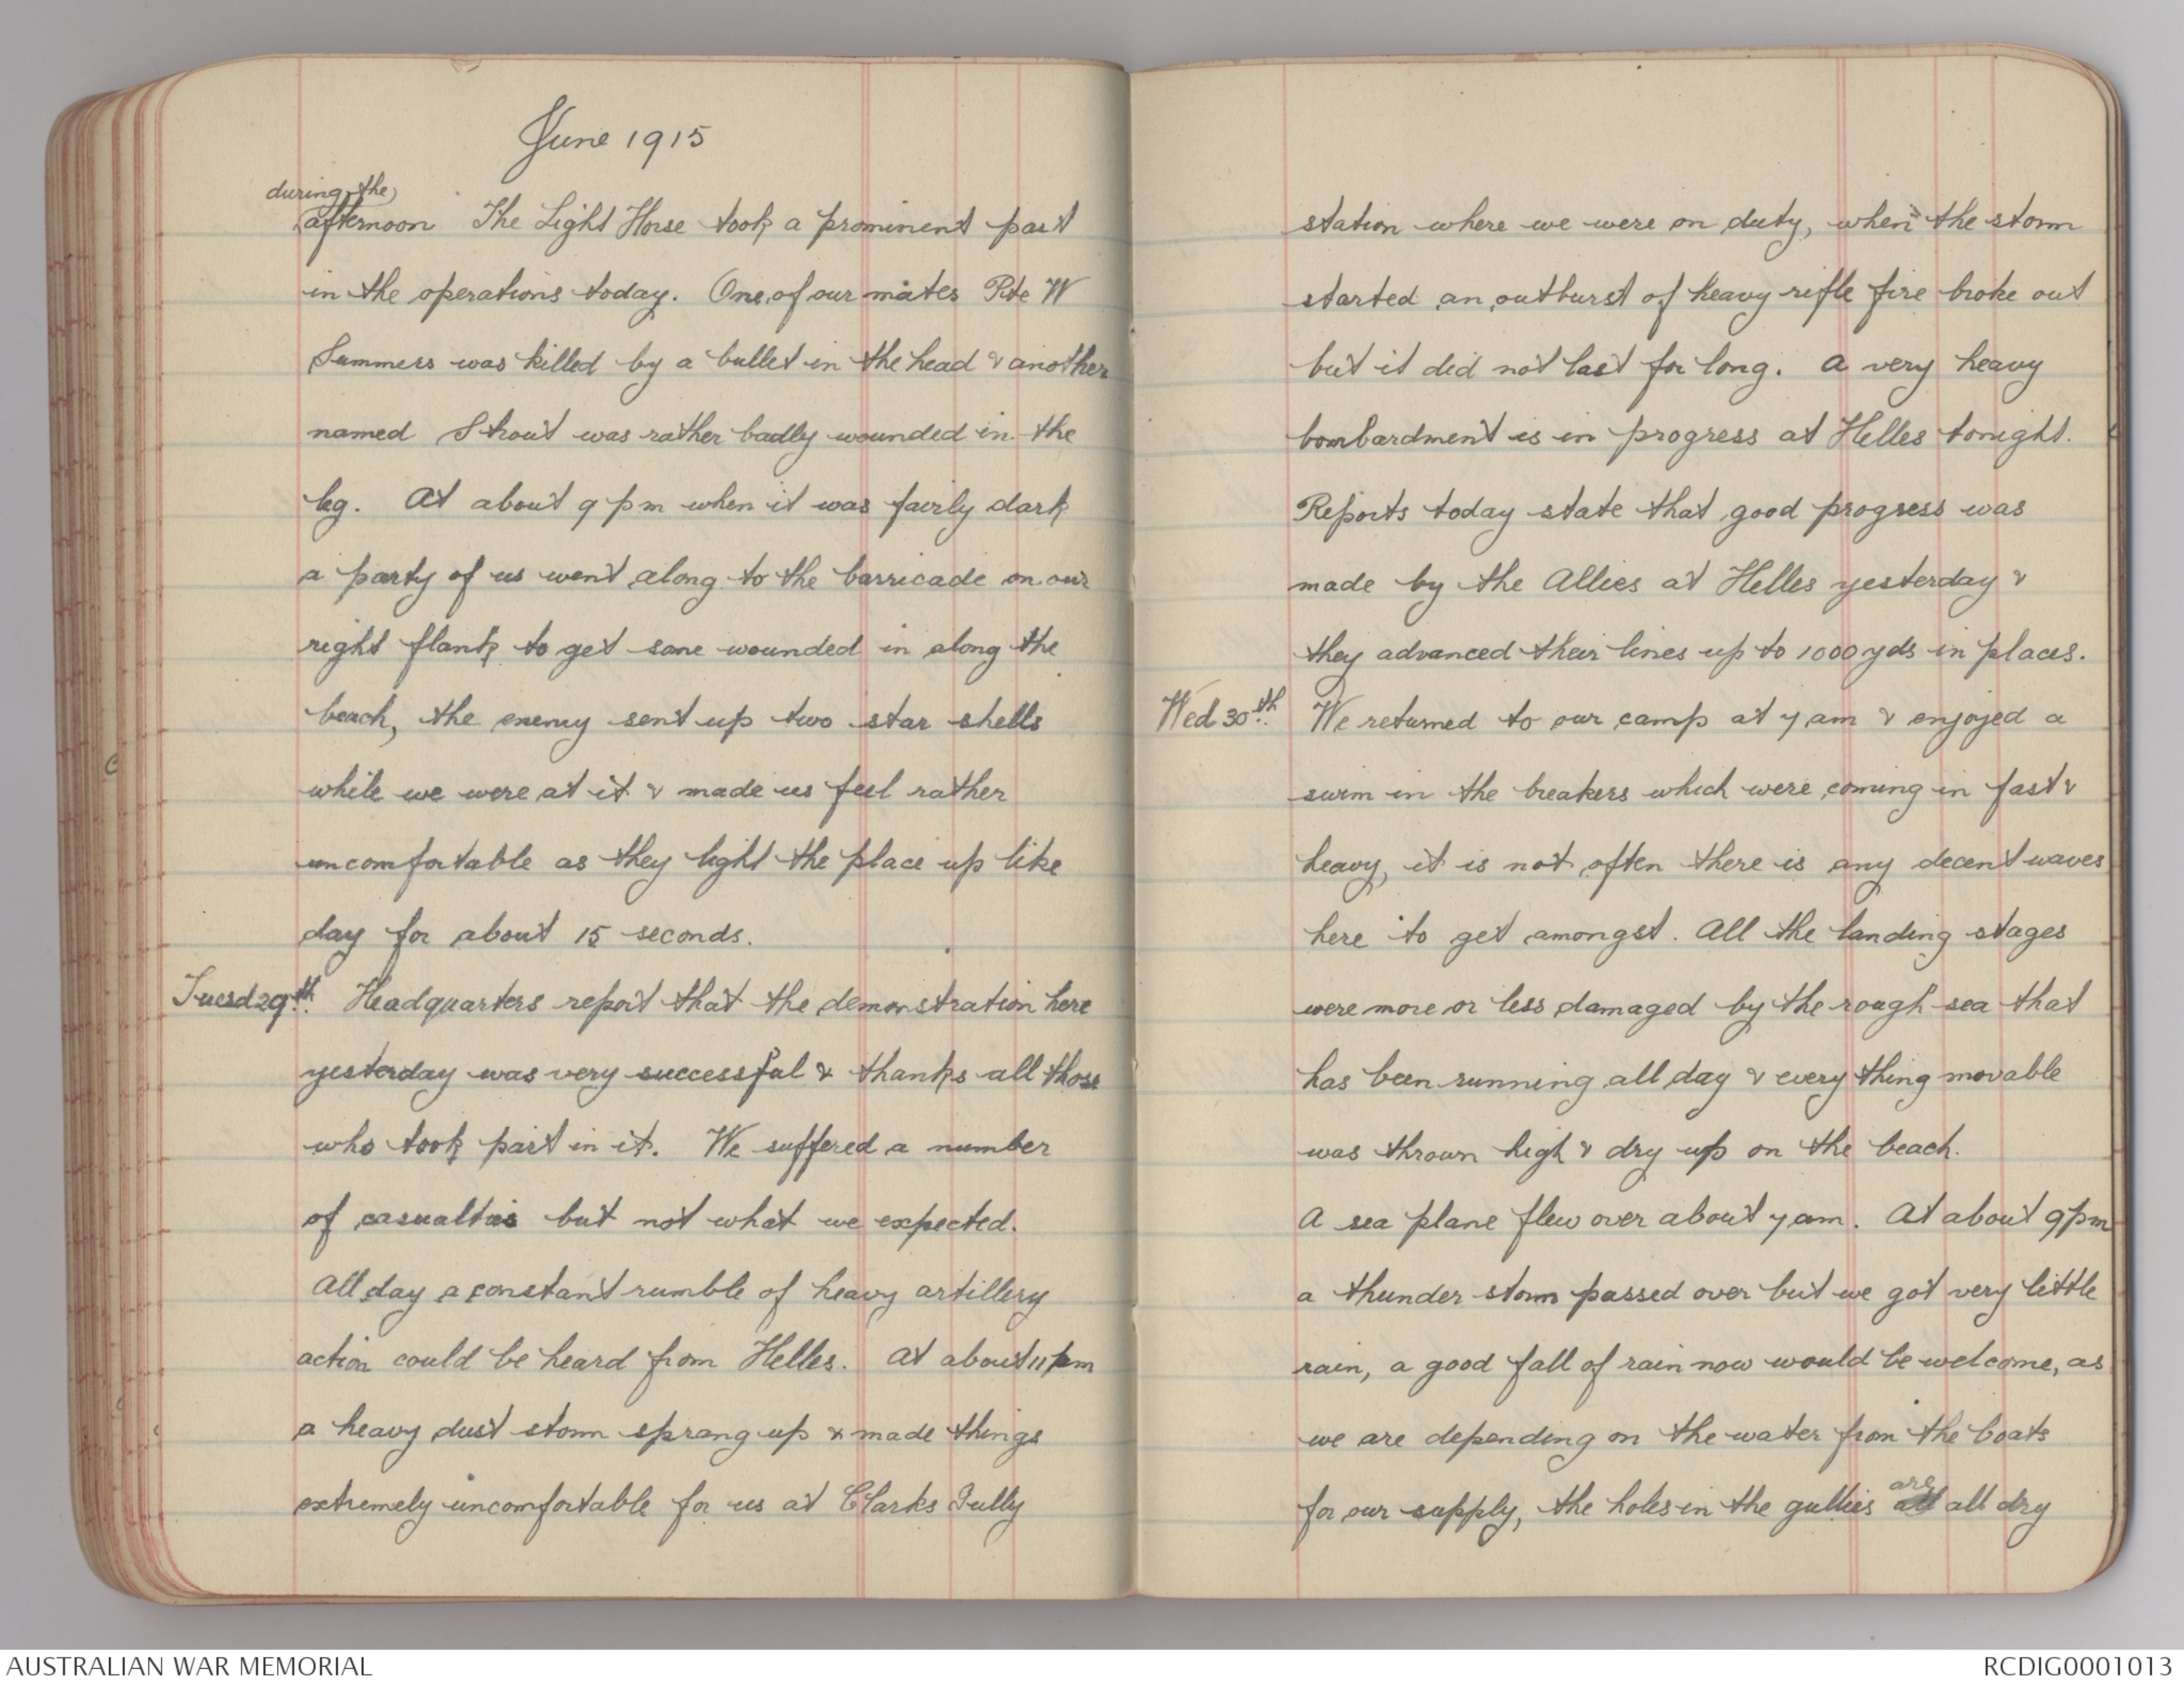 June 1915
during the
afternoon The Light Horse took a prominent part
in the operations today. One of our mates Pte W
Summers was killed by a bullet in the head & another
named Strout was rather badly wounded in the
leg. At about 9 pm when it was fairly dark
a party of us went along to the barricade on our
right flank to get some wounded in along the
beach, the enemy sent up two star shells
while we were at it & made us feel rather
uncomfortable as they light the place up like
day for about 15 seconds.
Tuesd 29th. Headquarters report that the demonstration here
yesterday was very successful & thanks all those
who took part in it. We suffered a number
of casualties but not what we expected.
All day a constant rumble of heavy artillery
action could be heard from Helles. At about 11 pm
a heavy dust storm sprang up & made things
extremely uncomfortable for us at Clarks Gully
station where we were on duty, when the storm
started an outburst of heavy rifle fire broke out
but it did not last for long. A very heavy
bombardment is in progress at Helles tonight.
Reports today state that good progress was
made by the Allies at Helles yesterday &
they advanced their lines up to 1000 yds in places.
Wed 30th. We returned to our camp at 7 am & enjoyed a
swim in the breakers which were coming in fast &
heavy, it is not often there is any decent waves
here to get amongst. All the landing stages
were more or less damaged by the rough sea that
has been running all day & every thing movable
was thrown high & dry up on the beach.
A sea plane flew over about 7 am. At about 9 pm
a thunder storm passed over but we got very little
rain, a good fall of rain now would be welcome, as
we are depending on the water from the boats
for our supply, the holes in the gullies are all dry
AUSTRALIAN WAR MEMORIAL
RCDIG0001013